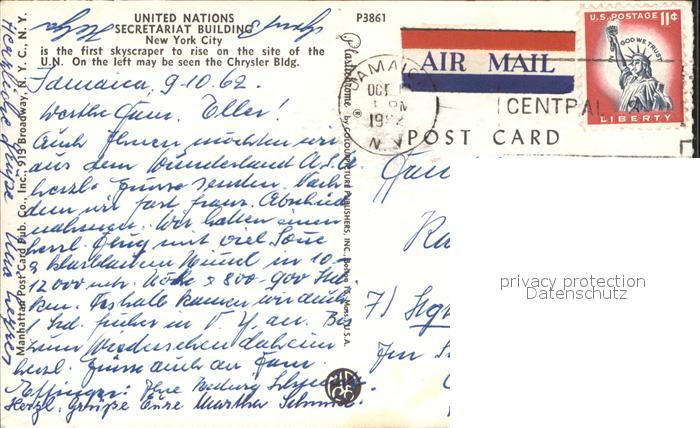 UNITED NATIONS
SECRETARIAT BUILDING
New York City
is the first skyscraper to rise on the site of the
U.N. On the left may be seen the Chrysler Bldg.
P3861
AIR MAIL
U.S. POSTAGE 11¢
IN GOD WE TRUST
LIBERTY
JAMAICA
OCT
1 PM
1962
N.Y.
CENTRAL
POST CARD
Jamaica, 9.10.62.
Werthe Fam. Eller!
Auch Ihnen möchten wir
aus dem Wunderland U.S.A.
herzl. Grüsse senden. Nach
dem wir fast franz. Abschied
nahmen. Wir hatten einen
herrl. Flug mit viel Sonne
& klarblauem Himmel in 10-
12000 mtr. Höhe & 800-900
Deshalb kamen wir auch
1 Std. früher in N.Y. an. Bis
zum Wiedersehen daheim
herzl. Grüsse auch an Fam.
Ihre Hedwig
Herzl. Grüße Eure Martha
Herzliche Grüße
Manhattan Post Card Pub. Co., Inc., 913 Broadway, N. Y. C., N. Y.
Plastichrome ® by COLOURPICTURE PUBLISHERS, INC. Boston 15, Mass., U.S.A.
Fam
71
privacy protection
Datenschutz